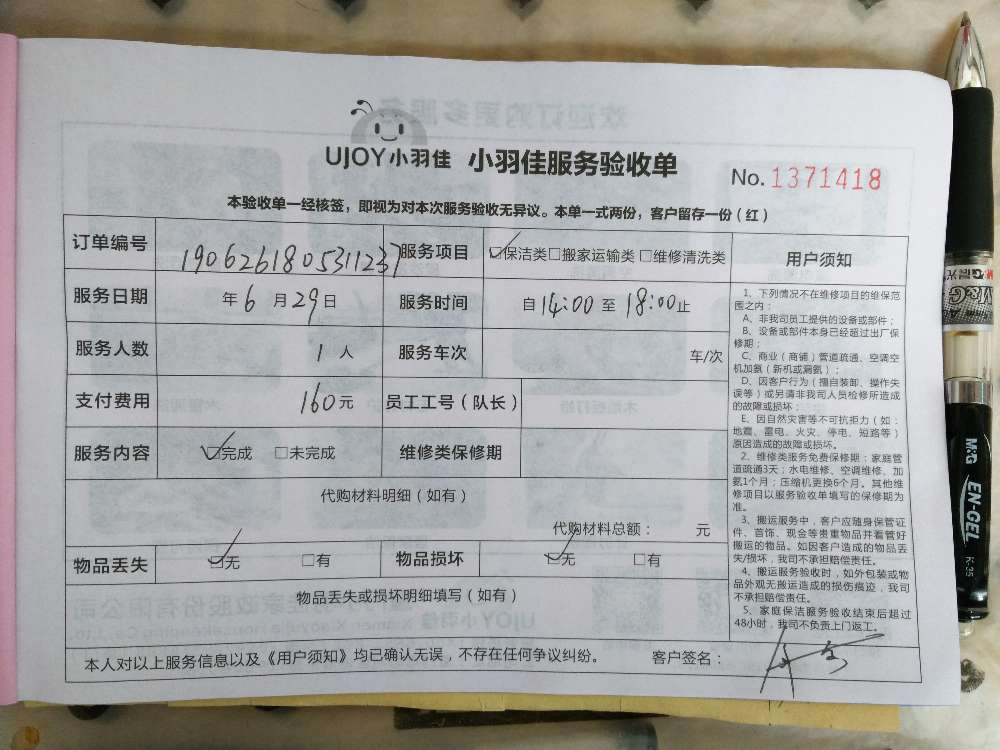 UJOY小羽佳 小羽佳服务验收单
No. 1371418
本验收单一经核签，即视为对本次服务验收无异议。本单一式两份，客户留存一份（红）
订单编号 190626180531123 服务项目 ☑保洁类□搬家运输类□维修清洗类
服务日期 年6月29日 服务时间 自14:00至18:00止
服务人数 1人 服务车次 车/次
支付费用 160元 员工工号（队长）
服务内容 ☑完成 □未完成 维修类保修期
代购材料明细（如有）
代购材料总额： 元
物品丢失 ☑无 □有 物品损坏 ☑无 □有
物品丢失或损坏明细填写（如有）
用户须知
1、下列情况不在维修项目的维保范
围之内：
A、非我司员工提供的设备或部件；
B、设备或部件本身已经超过出厂保
修期；
C、商业（商铺）管道疏通、空调空
机加氨（新机或漏氨）；
D、因客户行为（擅自装卸、操作失
误等）或另请非我司人员检修所造成
的故障或损坏；
E、因自然灾害等不可抗拒力（如：
地震、雷电、火灾、停电、短路等）
原因造成的故障或损坏。
2、维修类服务免费保修期：家庭管
道疏通3天；水电维修、空调维修、加
氨1个月；压缩机更换6个月。其他维
修项目以服务验收单填写的保修期为
准。
3、搬运服务中，客户应随身保管证
件、首饰、现金等贵重物品并看管好
搬运的物品。如因客户造成的物品丢
失/损坏，我司不承担赔偿责任。
4、搬运服务验收时，如外包装或物
品外观无搬运造成的损伤痕迹，我司
不承担赔偿责任。
5、家庭保洁服务验收结束后超过
48小时，我司不负责上门返工。
本人对以上服务信息以及《用户须知》均已确认无误，不存在任何争议纠纷。 客户签名：
M&G晨光
M&G
M&G EN-GEL K-35